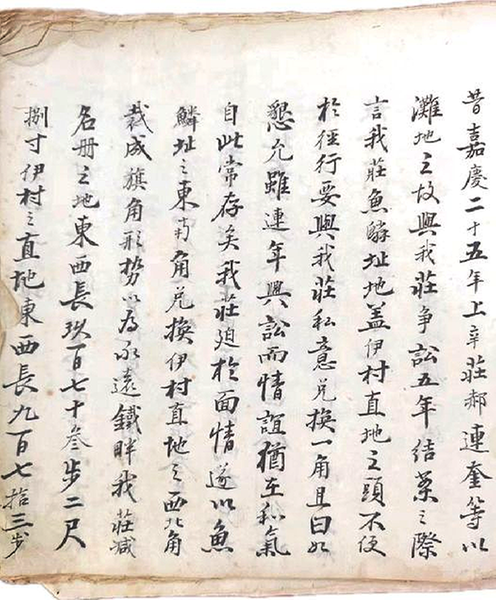 昔嘉慶二十五年上辛莊郝連奎等以
灘地之故與我莊爭訟五年結案之際
言我莊魚鱗址地盖伊村直地之頭不便
於徑行要與我莊私意兑換一角且曰如
懇允雖連年興訟而情誼猶在和氣
自此常存矣我莊廹於面情遂以魚
鱗址之東南角兑換伊村直地之西北角
裁成旗角形勢以為永遠鐵畔我莊減
名册之地東西長玖百七十叁步二尺
捌寸伊村之直地東西長九百七拾三步